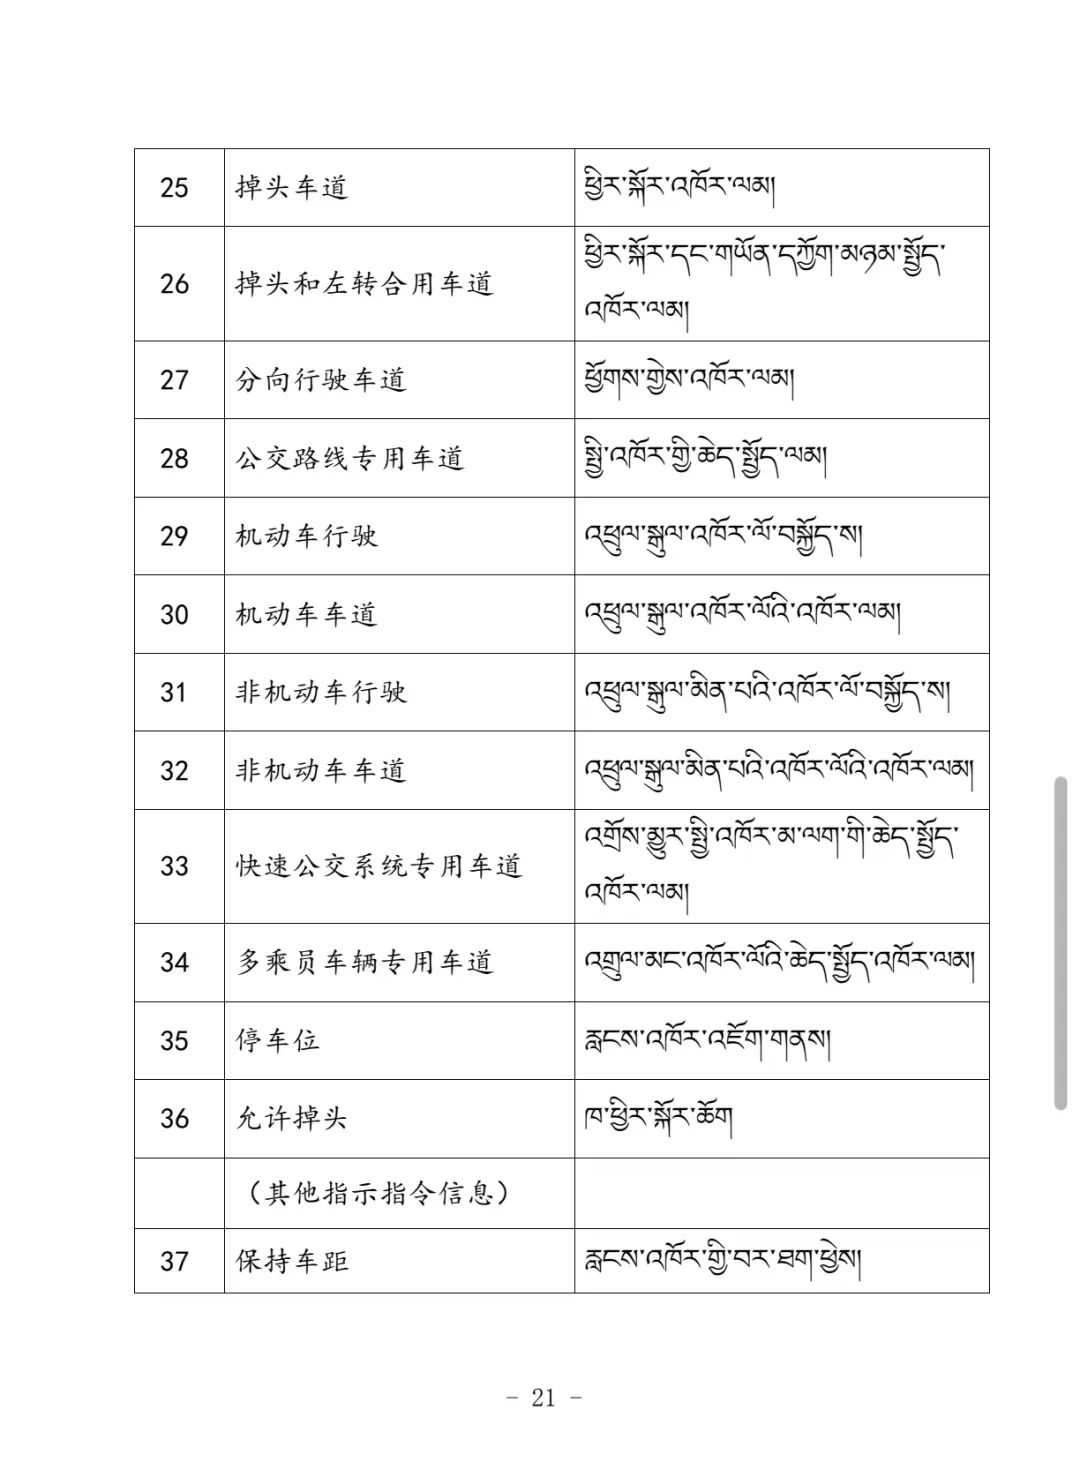 25 掉头车道 ཕྱིར་སྐོར་འཁོར་ལམ།
26 掉头和左转合用车道 ཕྱིར་སྐོར་དང་གཡོན་དཀྱོག་མཉམ་སྤྱོད་
འཁོར་ལམ།
27 分向行驶车道 ཕྱོགས་གྱེས་འཁོར་ལམ།
28 公交路线专用车道 སྤྱི་འཁོར་གྱི་ཆེད་སྤྱོད་ལམ།
29 机动车行驶 འཕྲུལ་སྒུལ་འཁོར་ལོ་བསྐྱོད་ས།
30 机动车车道 འཕྲུལ་སྒུལ་འཁོར་ལོའི་འཁོར་ལམ།
31 非机动车行驶 འཕྲུལ་སྒུལ་མིན་པའི་འཁོར་ལོ་བསྐྱོད་ས།
32 非机动车车道 འཕྲུལ་སྒུལ་མིན་པའི་འཁོར་ལོའི་འཁོར་ལམ།
33 快速公交系统专用车道 འགྲོས་མྱུར་སྤྱི་འཁོར་མ་ལག་གི་ཆེད་སྤྱོད་
འཁོར་ལམ།
34 多乘员车辆专用车道 འགྲུལ་མང་འཁོར་ལོའི་ཆེད་སྤྱོད་འཁོར་ལམ།
35 停车位 རླངས་འཁོར་འཇོག་གནས།
36 允许掉头 ཁ་ཕྱིར་སྐོར་ཆོག
（其他指示指令信息）
37 保持车距 རླངས་འཁོར་གྱི་བར་ཐག་ཕྱེས།
- 21 -